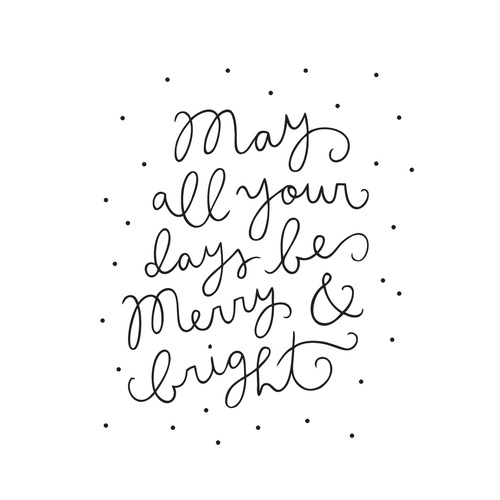 May
all your
days be
Merry &
bright